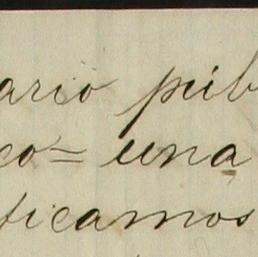 ario púb
co= una
ficamos